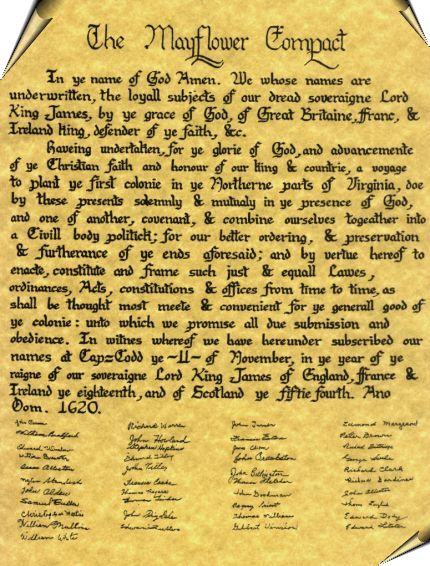 The Mayflower Compact
In ye name of God Amen. We whose names are
underwritten, the loyall subjects of our dread soveraigne Lord
King James, by ye grace of God, of Great Britaine, ffranc, &
Ireland king, defender of ye faith, &c.
Haveing undertaken, for ye glorie of God, and advancemente
of ye Christian faith and honour of our king & countrie, a voyage
to plant ye first colonie in ye Northerne parts of Virginia, doe
by these presents solemnly & mutualy in ye presence of God,
and one of another, covenant, & combine ourselves togeather into
a Civill body politick; for our better ordering, & preservation
& furtherance of ye ends aforesaid; and by vertue hereof to
enacte, constitute and frame such just & equall Lawes,
ordinances, Acts, constitutions & offices from time to time, as
shall be thought most meete & convenient for ye generall good of
ye colonie: unto which we promise all due submission and
obedience. In witnes whereof we have hereunder subscribed our
names at Cap=Codd ye ~11~ of November, in ye year of ye
raigne of our soveraigne Lord King James of England, ffrance &
Ireland ye eighteenth, and of Scotland ye fiftie fourth. Ano
Dom. 1620.
Richard Warren John Turner
William Bradford John Howland Francis Eaton Peter Brown
Edward Winslow Stephen Hopkins
William Brewster Edward Tilley John Crackston George Soule
Isaac Allerton John Tilley John Billington Richard Clark
Myles Standish Francis Cooke Moses Fletcher Richard Gardiner
John Alden Thomas Rogers John Goodman John Allerton
Samuel Fuller Thomas Tinker
Christopher Martin Thomas Williams Edward Doty
William Mullins Edward Fuller Gilbert Winslow Edward Leister
William White